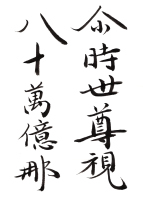 尒時世尊視
八十萬億那